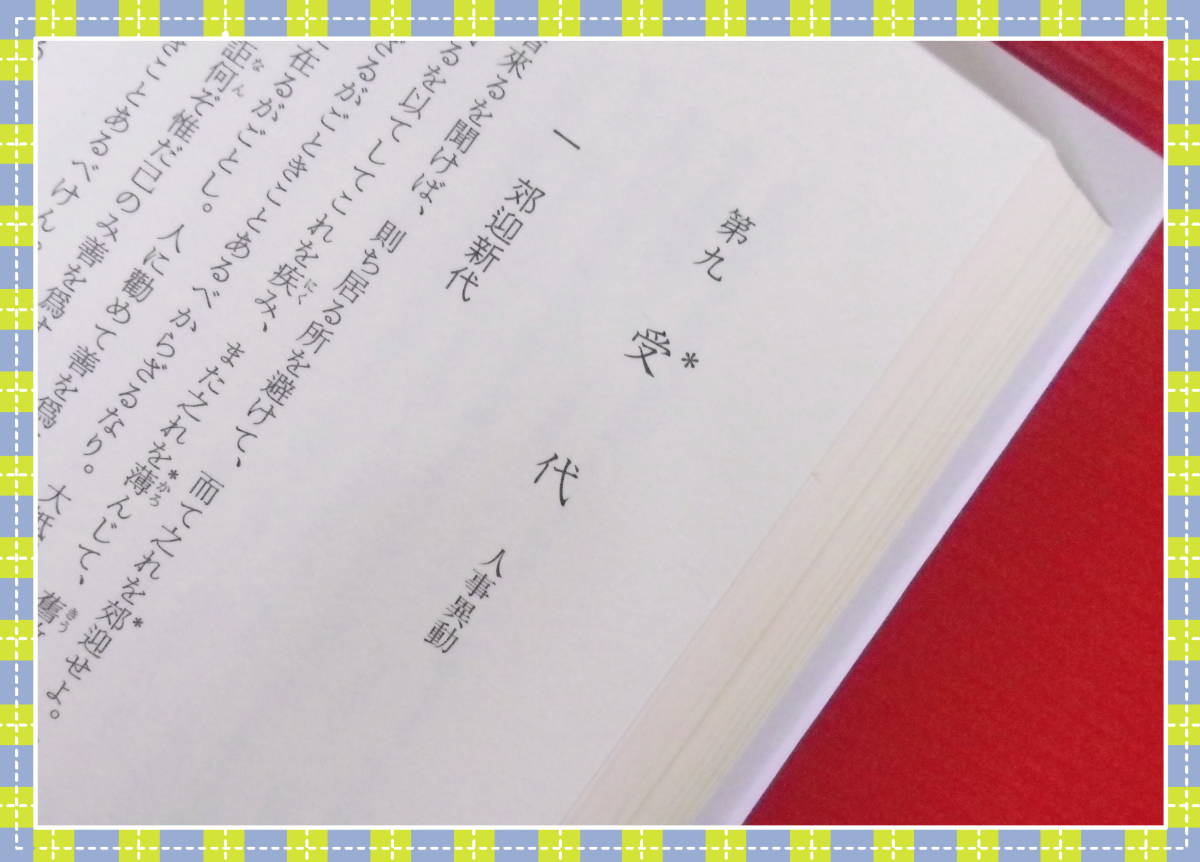 第九　受*代　人事異動
一　郊迎新代
來るを聞けば、則ち居る所を避けて、而て之れを*郊迎せよ。
るを以てしてこれを疾み、また之れを*薄んじて、舊
ざるがごときことあるべからざるなり。大抵
在るがごとし。人に勸めて善を爲
詎何ぞ惟だ己のみ善を爲
きことあるべけん。